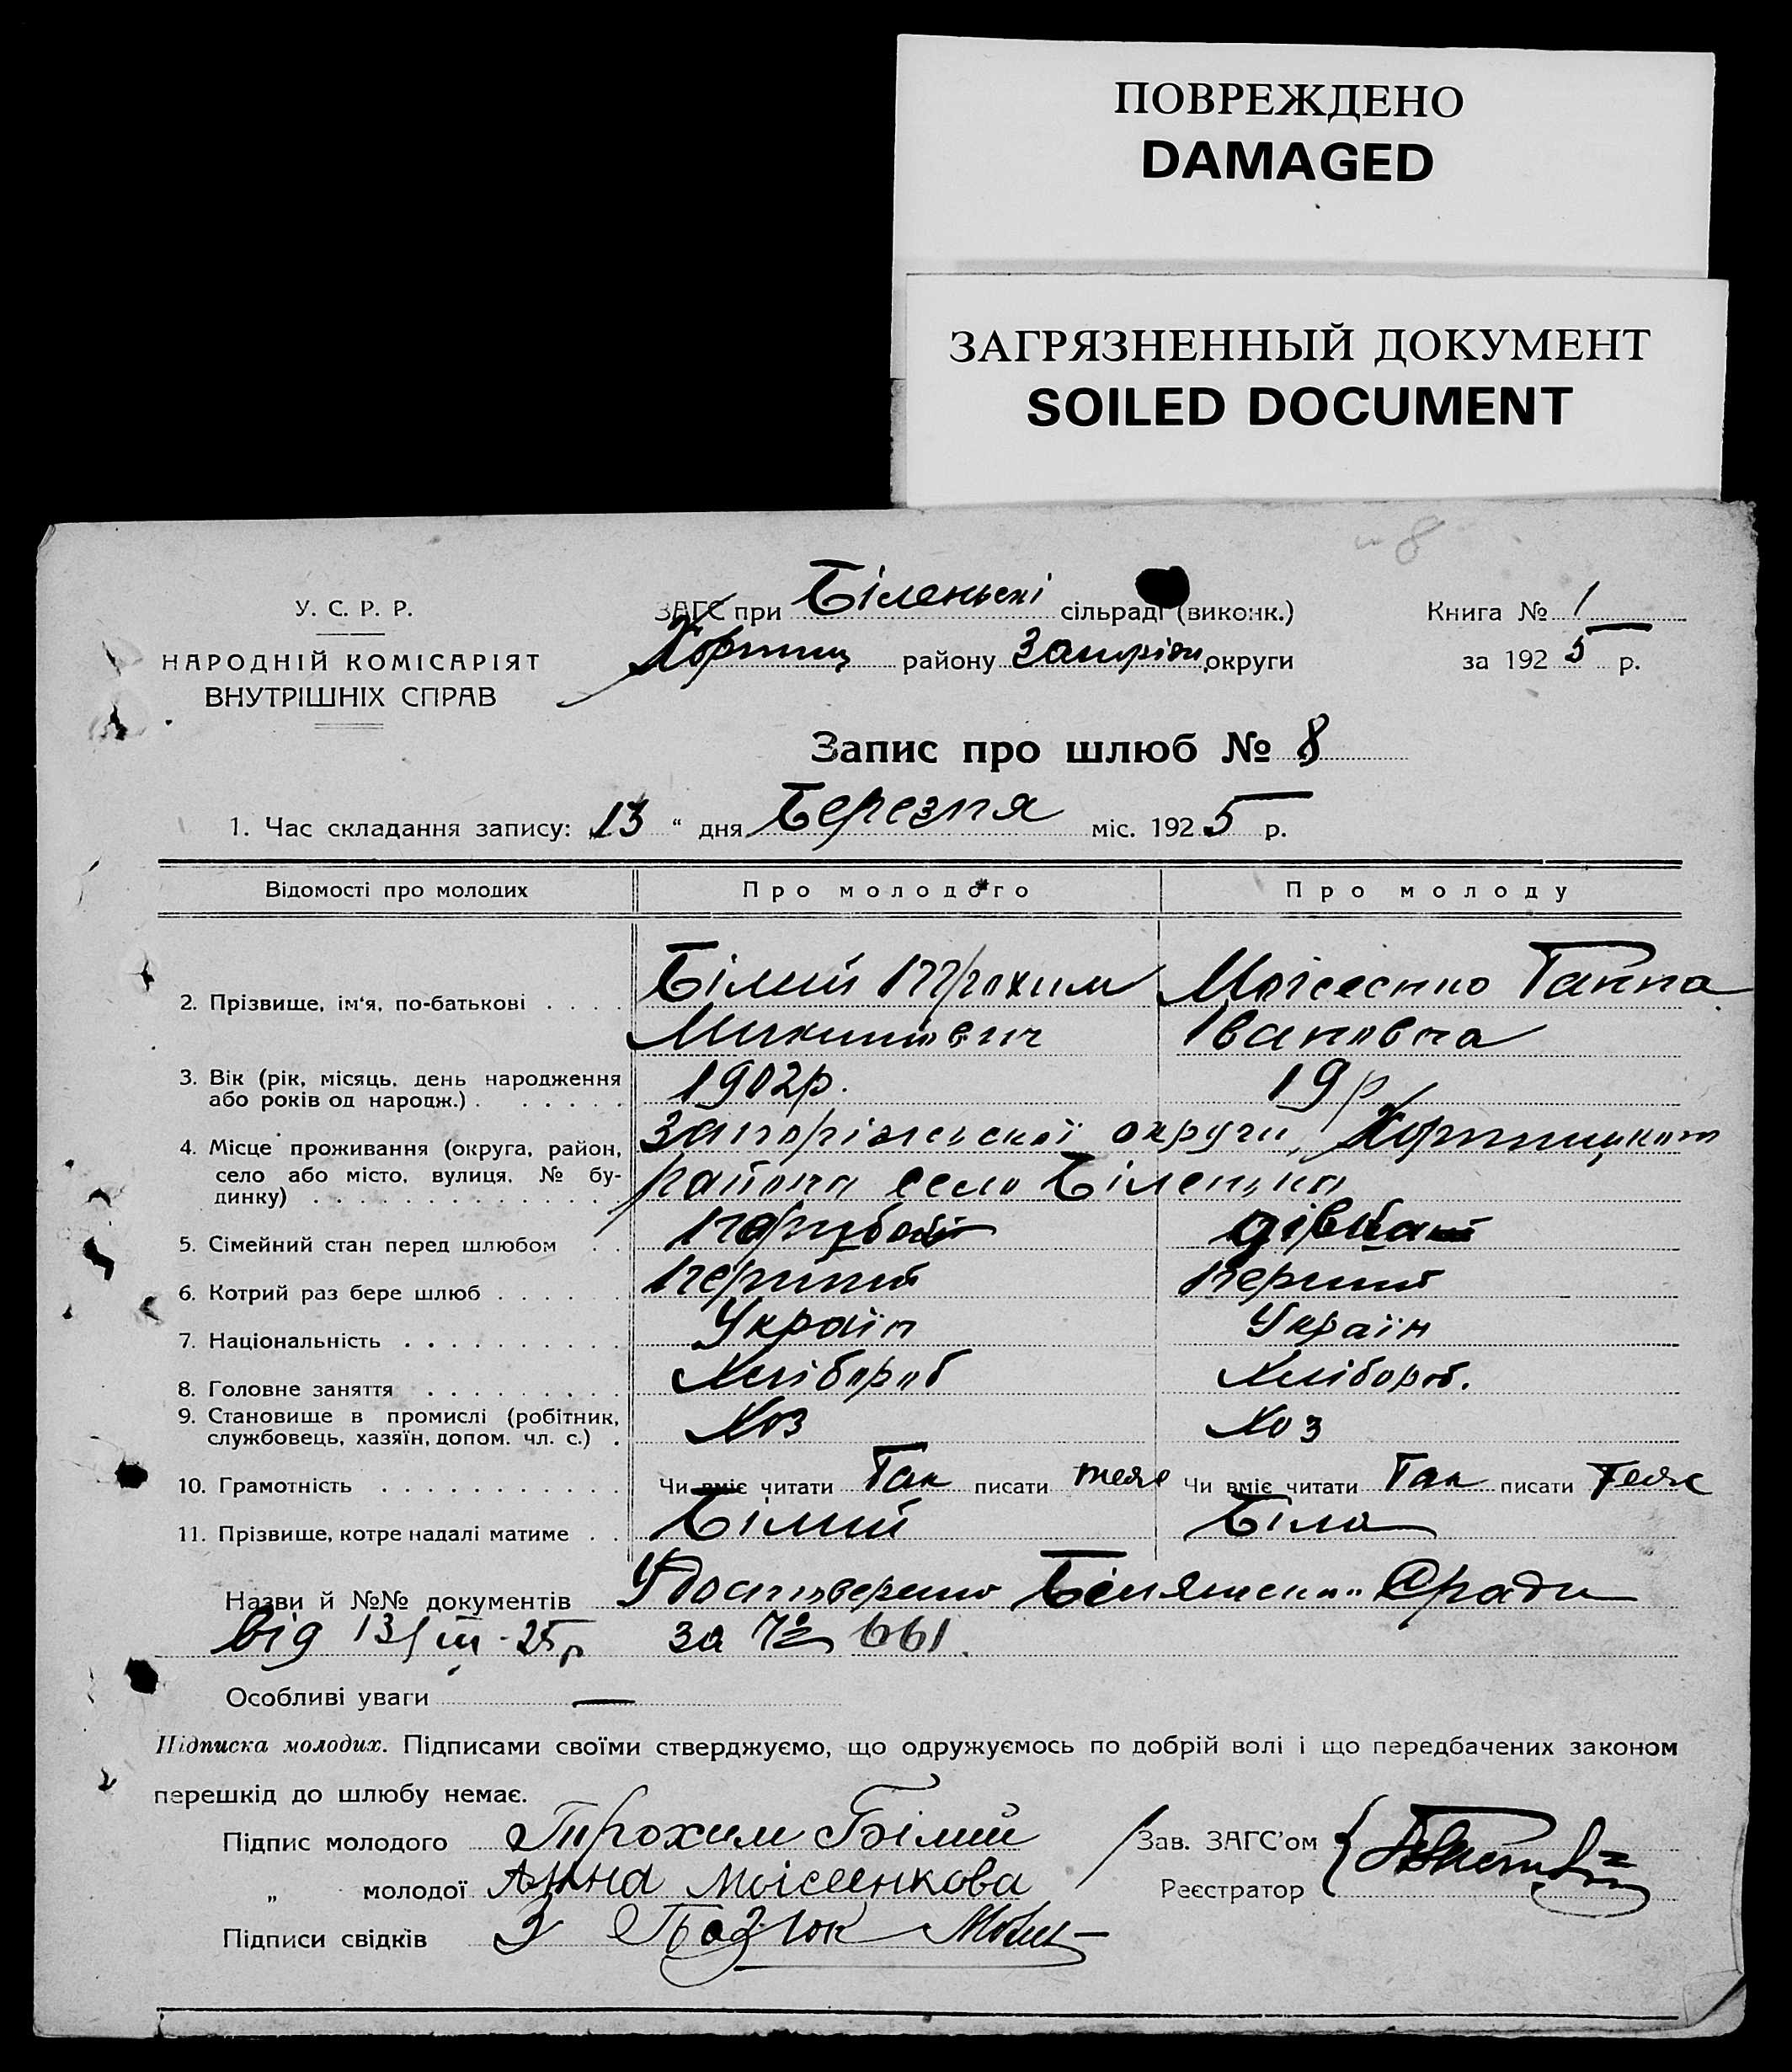 ПОВРЕЖДЕНО
DAMAGED
ЗАГРЯЗНЕННЫЙ ДОКУМЕНТ
SOILED DOCUMENT
8
У. С. Р. Р.
НАРОДНІЙ КОМІСАРІЯТ
ВНУТРІШНІХ СПРАВ
ЗАГС при Біленьскі сільраді (виконк.)
Хортиц району Запоріж. округи
Книга № 1
за 1925 р.
Запис про шлюб № 8
1. Час складання запису: 13 “ дня Березня міс. 1925 р.
Відомості про молодих
Про молодого
Про молоду
2. Прізвище, ім'я, по-батькові
Білий Трохим Микитович
Моісеєнко Ганна Івановна
3. Вік (рік, місяць, день народження або років од народж.)
1902р.
19 р
4. Місце проживання (округа, район, село або місто, вулиця, № будинку)
Запоріжської округи, Хортицкого
района село Біленька
5. Сімейний стан перед шлюбом
парубок
дівка
6. Котрий раз бере шлюб
перший
перший
7. Національність
Україн
Україн
8. Головне заняття
Хлібороб
Хлібороб.
9. Становище в промислі (робітник, службовець, хазяїн, допом. чл. с.)
Хоз
Хоз
10. Грамотність
Чи вміє читати Так писати теж
Чи вміє читати Так писати Теж
11. Прізвище, котре надалі матиме
Білий
Біла
Назви й №№ документів Удостоверено Сради
від 13/III-25р за № 661.
Особливі уваги —
Підписка молодих. Підписами своїми стверджуємо, що одружуємось по добрій волі і що передбачених законом
перешкід до шлюбу немає.
Підпис молодого Трохим Білий
„ молодої Анна Моісеенкова
Підписи свідків
Зав. ЗАГС'ом
Реєстратор